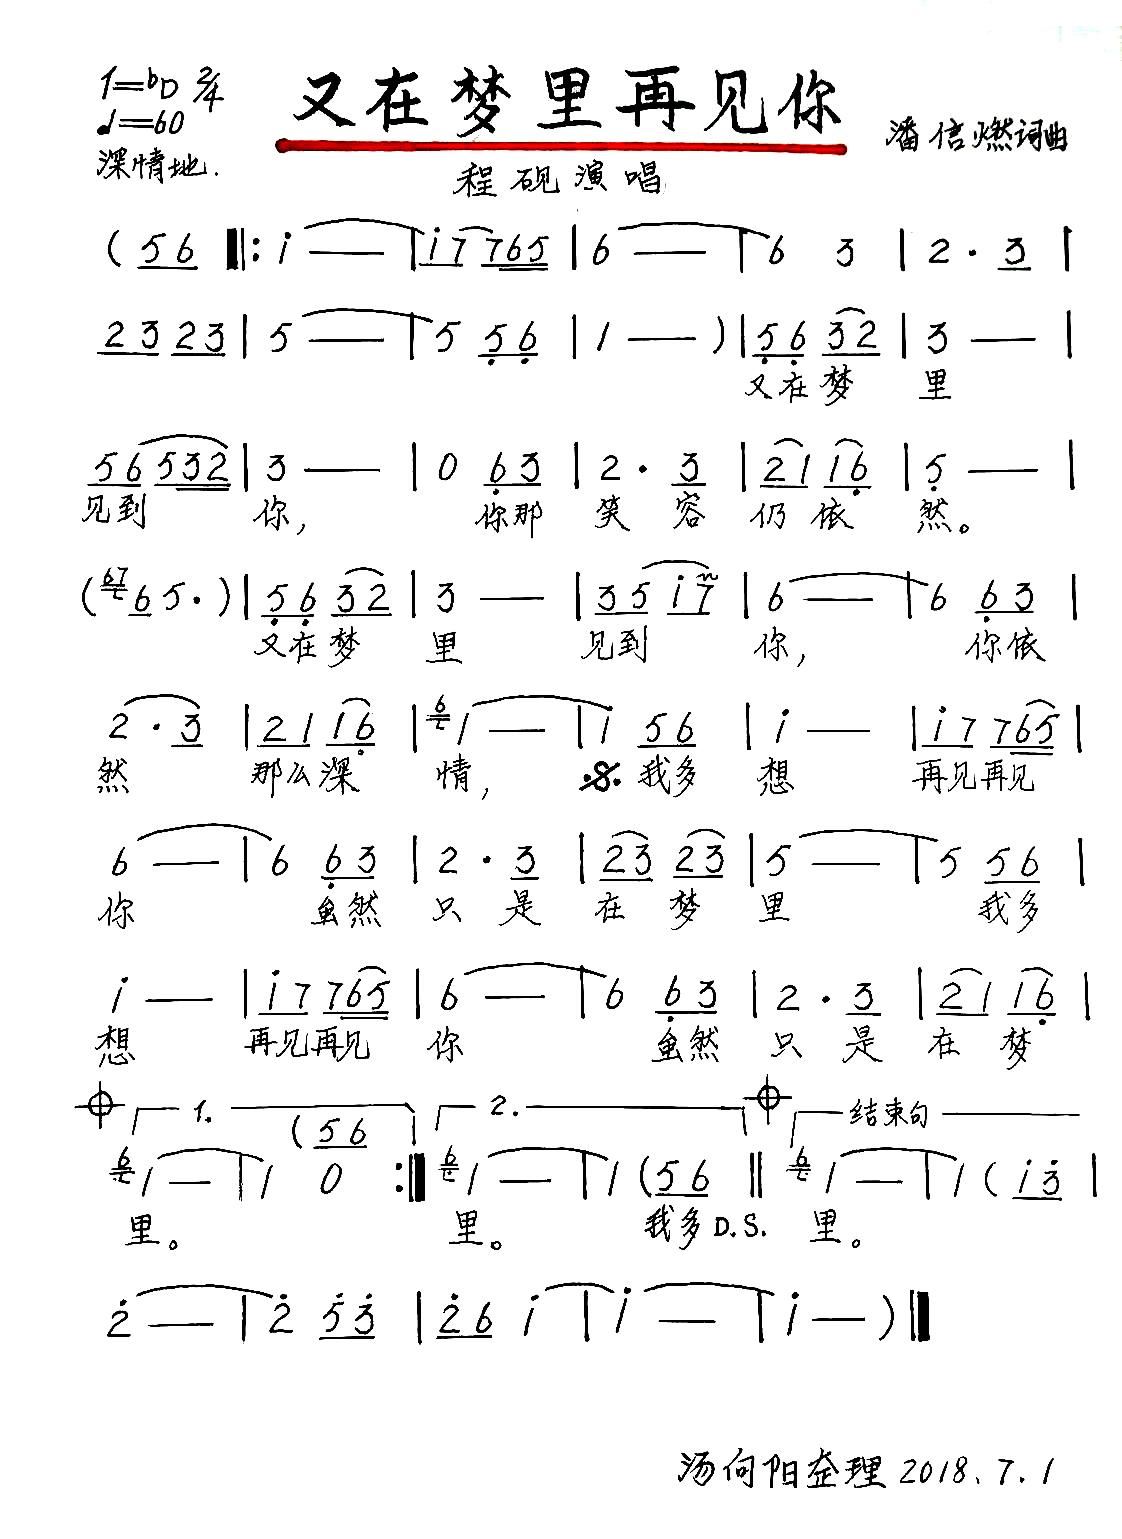 1=♭D 2/4
又在梦里再见你
♩=60
潘信燃词曲
深情地.
程砚演唱
( 5 6 ‖: i — | i 7 7 6 5 | 6 — | 6 3 | 2 · 3 |
2 3 2 3 | 5 — | 5 5 6 | 1 — ) | 5 6 3 2 | 3 — |
又在梦 里
5 6 5 3 2 | 3 — | 0 6 3 | 2 · 3 | 2 1 1 6 | 5 — |
见到 你, 你那 笑 容 仍 依 然。
( 67 6 5 · ) | 5 6 3 2 | 3 — | 3 5 i 7 | 6 — | 6 6 3 |
又在梦 里 见到 你, 你依
2 · 3 | 2 1 1 6 | 6 1 — | i 5 6 | i — | i 7 7 6 5 |
然 那么深 情, 我多 想 再见再见
6 — | 6 6 3 | 2 · 3 | 2 3 2 3 | 5 — | 5 5 6 |
你 虽然 只 是 在 梦 里 我多
i — | i 7 7 6 5 | 6 — | 6 6 3 | 2 · 3 | 2 1 1 6 |
想 再见再见 你 虽然 只 是 在 梦
1. 2. 结束句
( 5 6
6 1 — | 1 0 :‖ 6 1 — | 1 ( 5 6 ‖ 6 1 — | 1 ( i 3 |
里。 里。 我多 D.S. 里。
2 — | 2 5 3 | 2 6 i | i — | i — ) ‖
汤向阳整理 2018.7.1